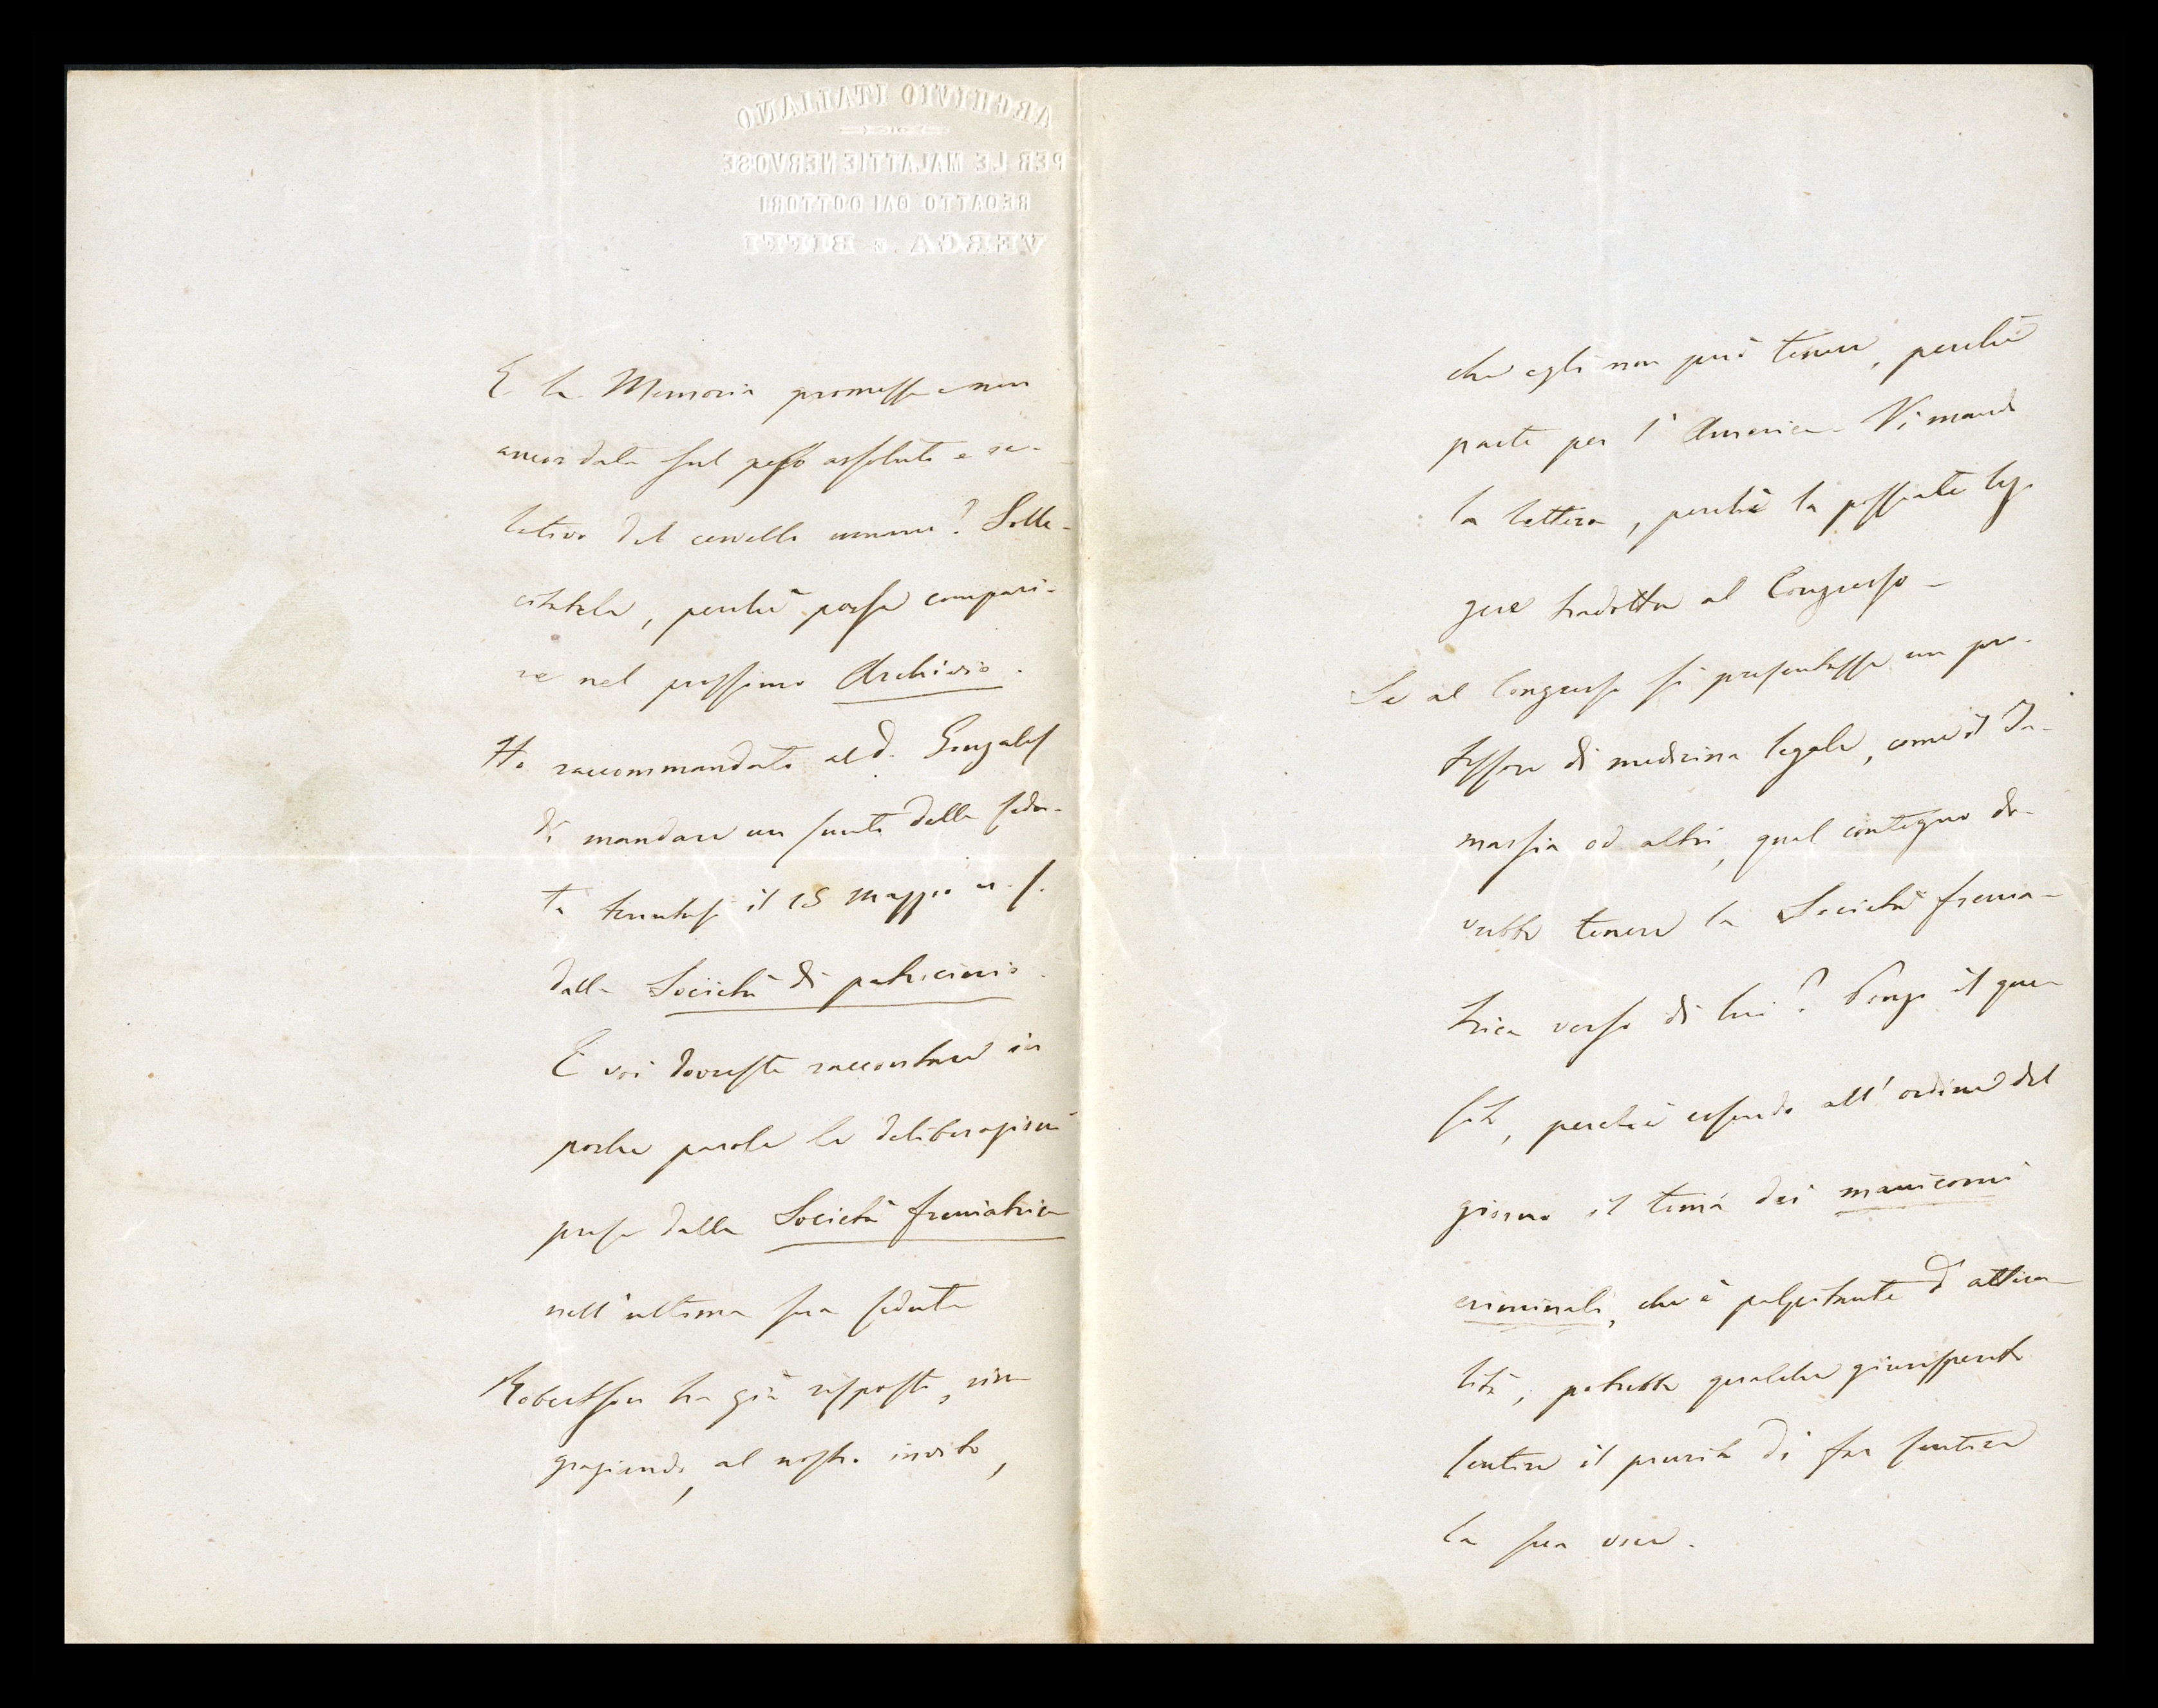 ARCHIVIO ITALIANO
PER LE MALATTIE NERVOSE
REDATTO DAI DOTTORI
VERGA E BIFFI
E la Memoria promessa e non
ancor data sul peso assoluto e re-
lativo del cervello umano? Solle-
citatela, perchè possa compari-
re nel prossimo Archivio.
Ho raccommandato al d. Gonzales
di mandare un sunto della sedu-
ta tenutasi il 15 Maggio
dalla Società di patrocinio.
E voi dovreste raccontare in
poche parole le deliberazioni
prese dalla Società freniatrica
nell'ultima sua seduta
Robertson ha già risposto, rin-
graziando, al nostro invito,
che egli non può tenere, perchè
parte per l'America. Vi mando
la lettera, perchè la possiate leg-
gere tradotta al Congresso-
Se al Congresso si presentasse un pro-
fessore di medicina legale, come il Ta-
massia od altri, qual contegno do-
vrebbe tenere la Società frenia-
trica verso di lui? Pongo il que-
sito, perchè essendo all'ordine del
giorno il tema dei manicomi
criminali, che è palpitante d'attua-
lità, potrebbe qualche giurisperito
sentire il prurito di far sentire
la sua voce.